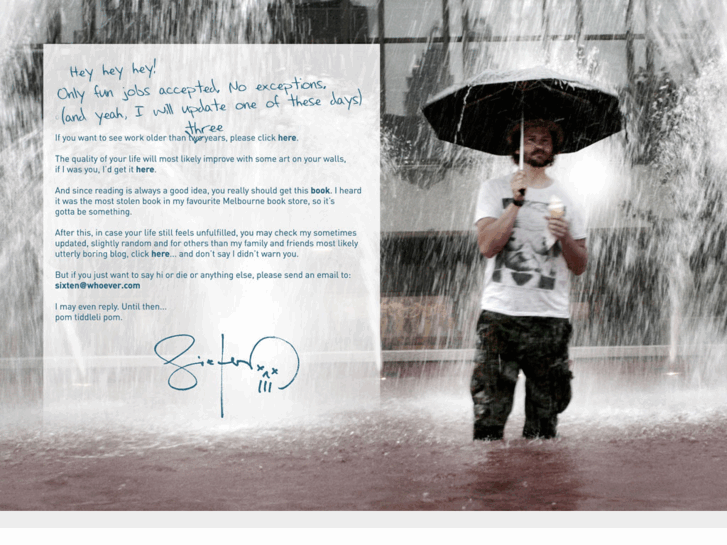 Hey hey hey!
Only fun jobs accepted. No exceptions.
(and yeah, I will update one of these days)
three
If you want to see work older than two years, please click here.
The quality of your life will most likely improve with some art on your walls,
if I was you, I'd get it here.
And since reading is always a good idea, you really should get this book. I heard
it was the most stolen book in my favourite Melbourne book store, so it's
gotta be something.
After this, in case your life still feels unfulfilled, you may check my sometimes
updated, slightly random and for others than my family and friends most likely
utterly boring blog, click here... and don't say I didn't warn you.
But if you just want to say hi or die or anything else, please send an email to:
sixten@whoever.com
I may even reply. Until then...
pom tiddleli pom.
Sixten